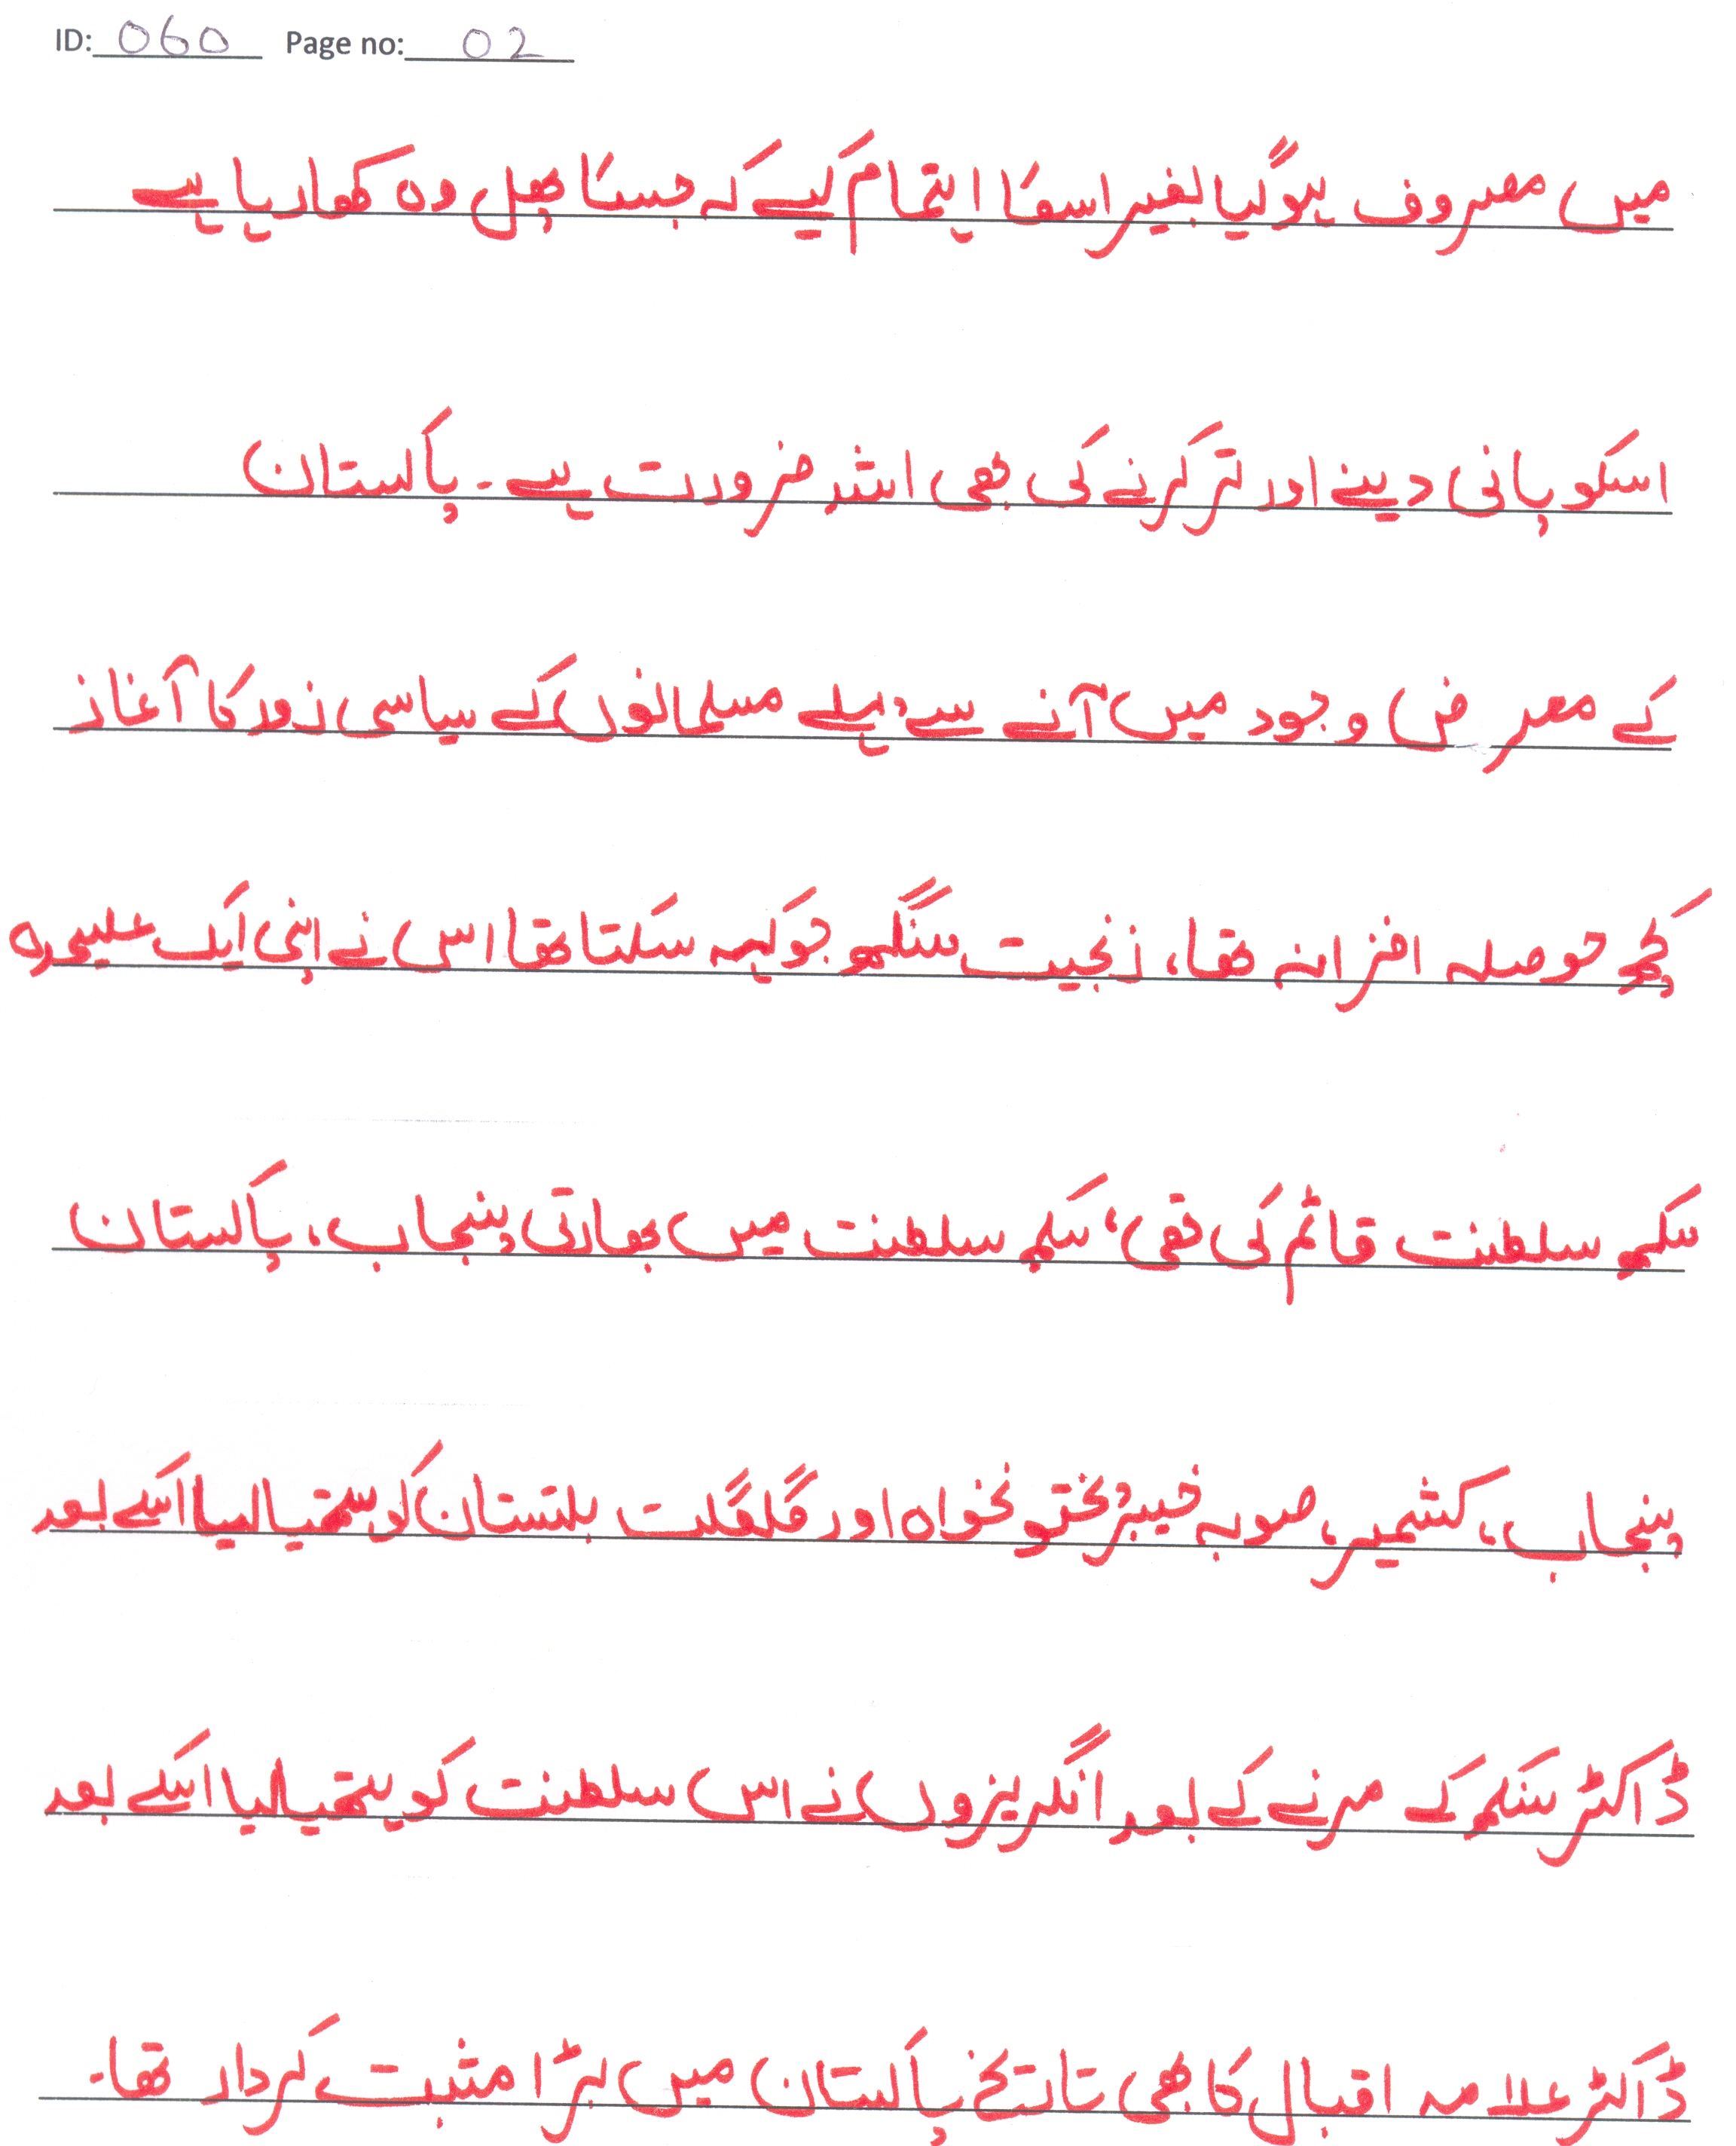 ID: 060 Page no: 02
میں مصروف ہوگیا بغیر اسکا اہتمام کیے کہ جسکا پھل وہ کھا رہا ہے
اسکو پانی دینے اور تر کرنے کی بھی اشد ضرورت ہے۔ پاکستان
کے معرض وجود میں آنے سے پہلے مسلمانوں کے سیاسی زور کا آغاز
کچھ حوصلہ افزا نہ تھا، رنجیت سنگھ جو کہہ سکتا تھا اس نے اپنی ایک علیحدہ
سکھ سلطنت قائم کی تھی، سکھ سلطنت میں بھارتی پنجاب، پاکستان
پنجاب، کشمیر، صوبہ خیبر پختونخواہ اور گلگلت بلتستان کو ہتھیا لیا اسکے بعد
ڈاکٹر سنگھ کے مرنے کے بعد انگریزوں نے اس سلطنت کو ہتھیا لیا اسکے بعد
ڈاکٹر علامہ اقبال کا بھی تاریخ پاکستان میں بڑا مثبت کردار تھا۔